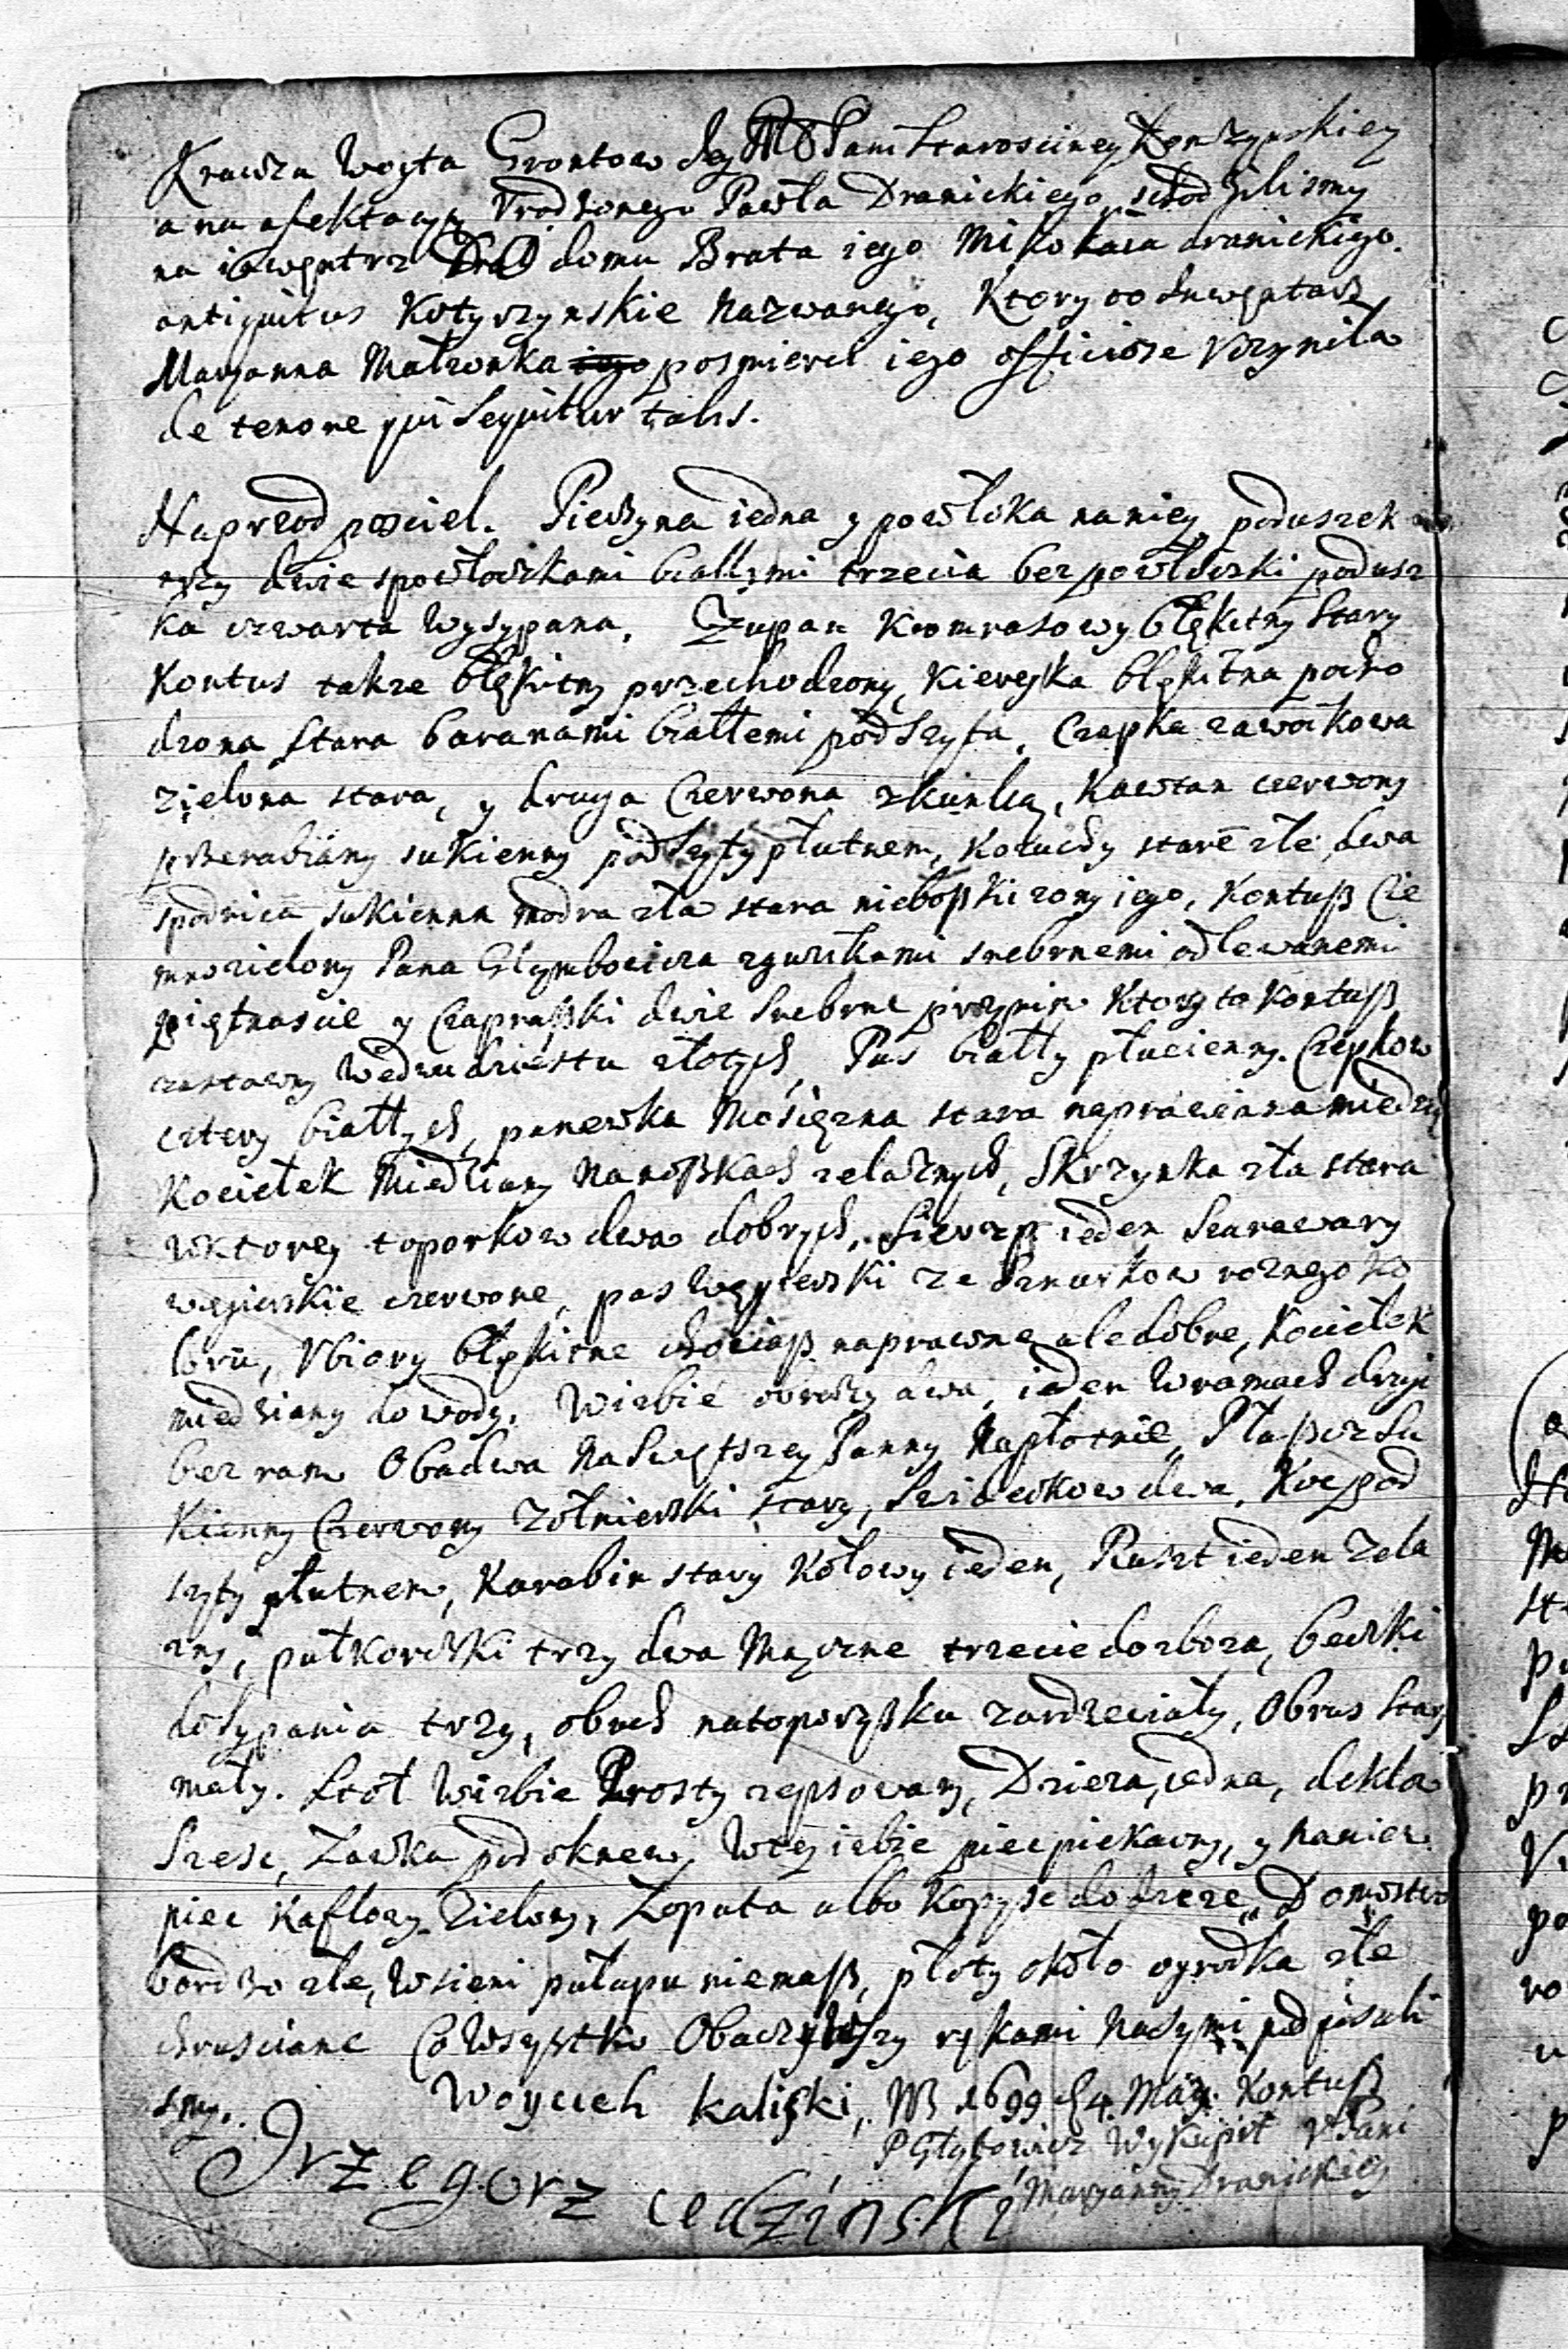 Krawca Woyta Grontow Jey Mś Pani Starosciney
a na afektacyą Vrodzonego Pawła Dranickiego schodzilismy
na iewentrz Drá domu Brata iego Mikołaia dranickiego.
antiquitus Kotyrzynskie nazwanego, Ktory to Inwentarz
Maryanna Małzonka iego posmierci iego officiose Vczyniła
de tenore qui sequitur talis.
Naprzod posciel. Pierzyna iedna y powłoka naniey poduszek
trzy dwie spowłoczkami białłymi trzecia bezpowłoczki podusz
ka czwarta wysypana. Zupan kromrasowy błękitny stary
Kontus takze błękitny przechodzony, Kiereyka błękitna pocho
dzona stara baranami białłemi podszyta. Czapka zawoikowa
zielona stara, y druga Czerwona zkunką, Kawtan czerwony
przerabiány sukienny podszyty płutnem, Kozuchy stare złe dwa
spodnica sukienna modra zła stara niebosski zony iego, Kontuss Cie
mnozielony Pana Głymbocicza zguzikami srebrnemi odlewanemi
piętnascie y Czaprasski dwie srebrne przynim Ktory to Kontuss
zastawny wedwudziestu złotych, Pas białły płucienny. Czepkow
cztery białłych, panewka Mosięzna stara naprawiana miedzią
Kociełek Miedziany Nanosskach zelaznych, Skrzynka zła stara
wktorey toporkow dwa dobrych, Sierzp ieden Szarawary
węgierskie czerwone, pas Węgierski ze sznurkow roznego ko
loru, Vbiory błękitne chociass naprawne ale dobre, Kociełek
miedziany do wody. Wizbie obrazy dwa, ieden Wramach drugi
bez ram Obadwa Naswiętszey Panny Napłotnie, Płasscz Su
kienny Czerwony Zołnierski stary, Swiderkow dwa. Koc pod
szyty płutnem, Karabin stary Kołowy ieden, Ruszt ieden Zela
zny, pułkorczki trzy dwa Mączne trzecie dozboza, beczki
do sypania trzy, obuch natoporzysku zardzeciały, Obrus stary
mały. Stoł Wizbie Prosty zepsowany, Dzieza iedna, dekla
Szesc, Ławka pod oknem, Wtey izbie piec piekarny, y naniem
piec Kaflowy Zielony, Łopata albo Kopysc do dzieze. Domostwo
bardzo złe, Wsieni pułapu niemass, płoty około ogrodka złe
chrusciane Co Wszystko Obaczywszy rękami naszymi podpisali
smy.
Woyciech Kaliski, 1699 d 4. Maÿ. Kontuss
P Głębowicz Wykupił V Pani
Maryanny Dranickiey
Grzegorz cedzinski